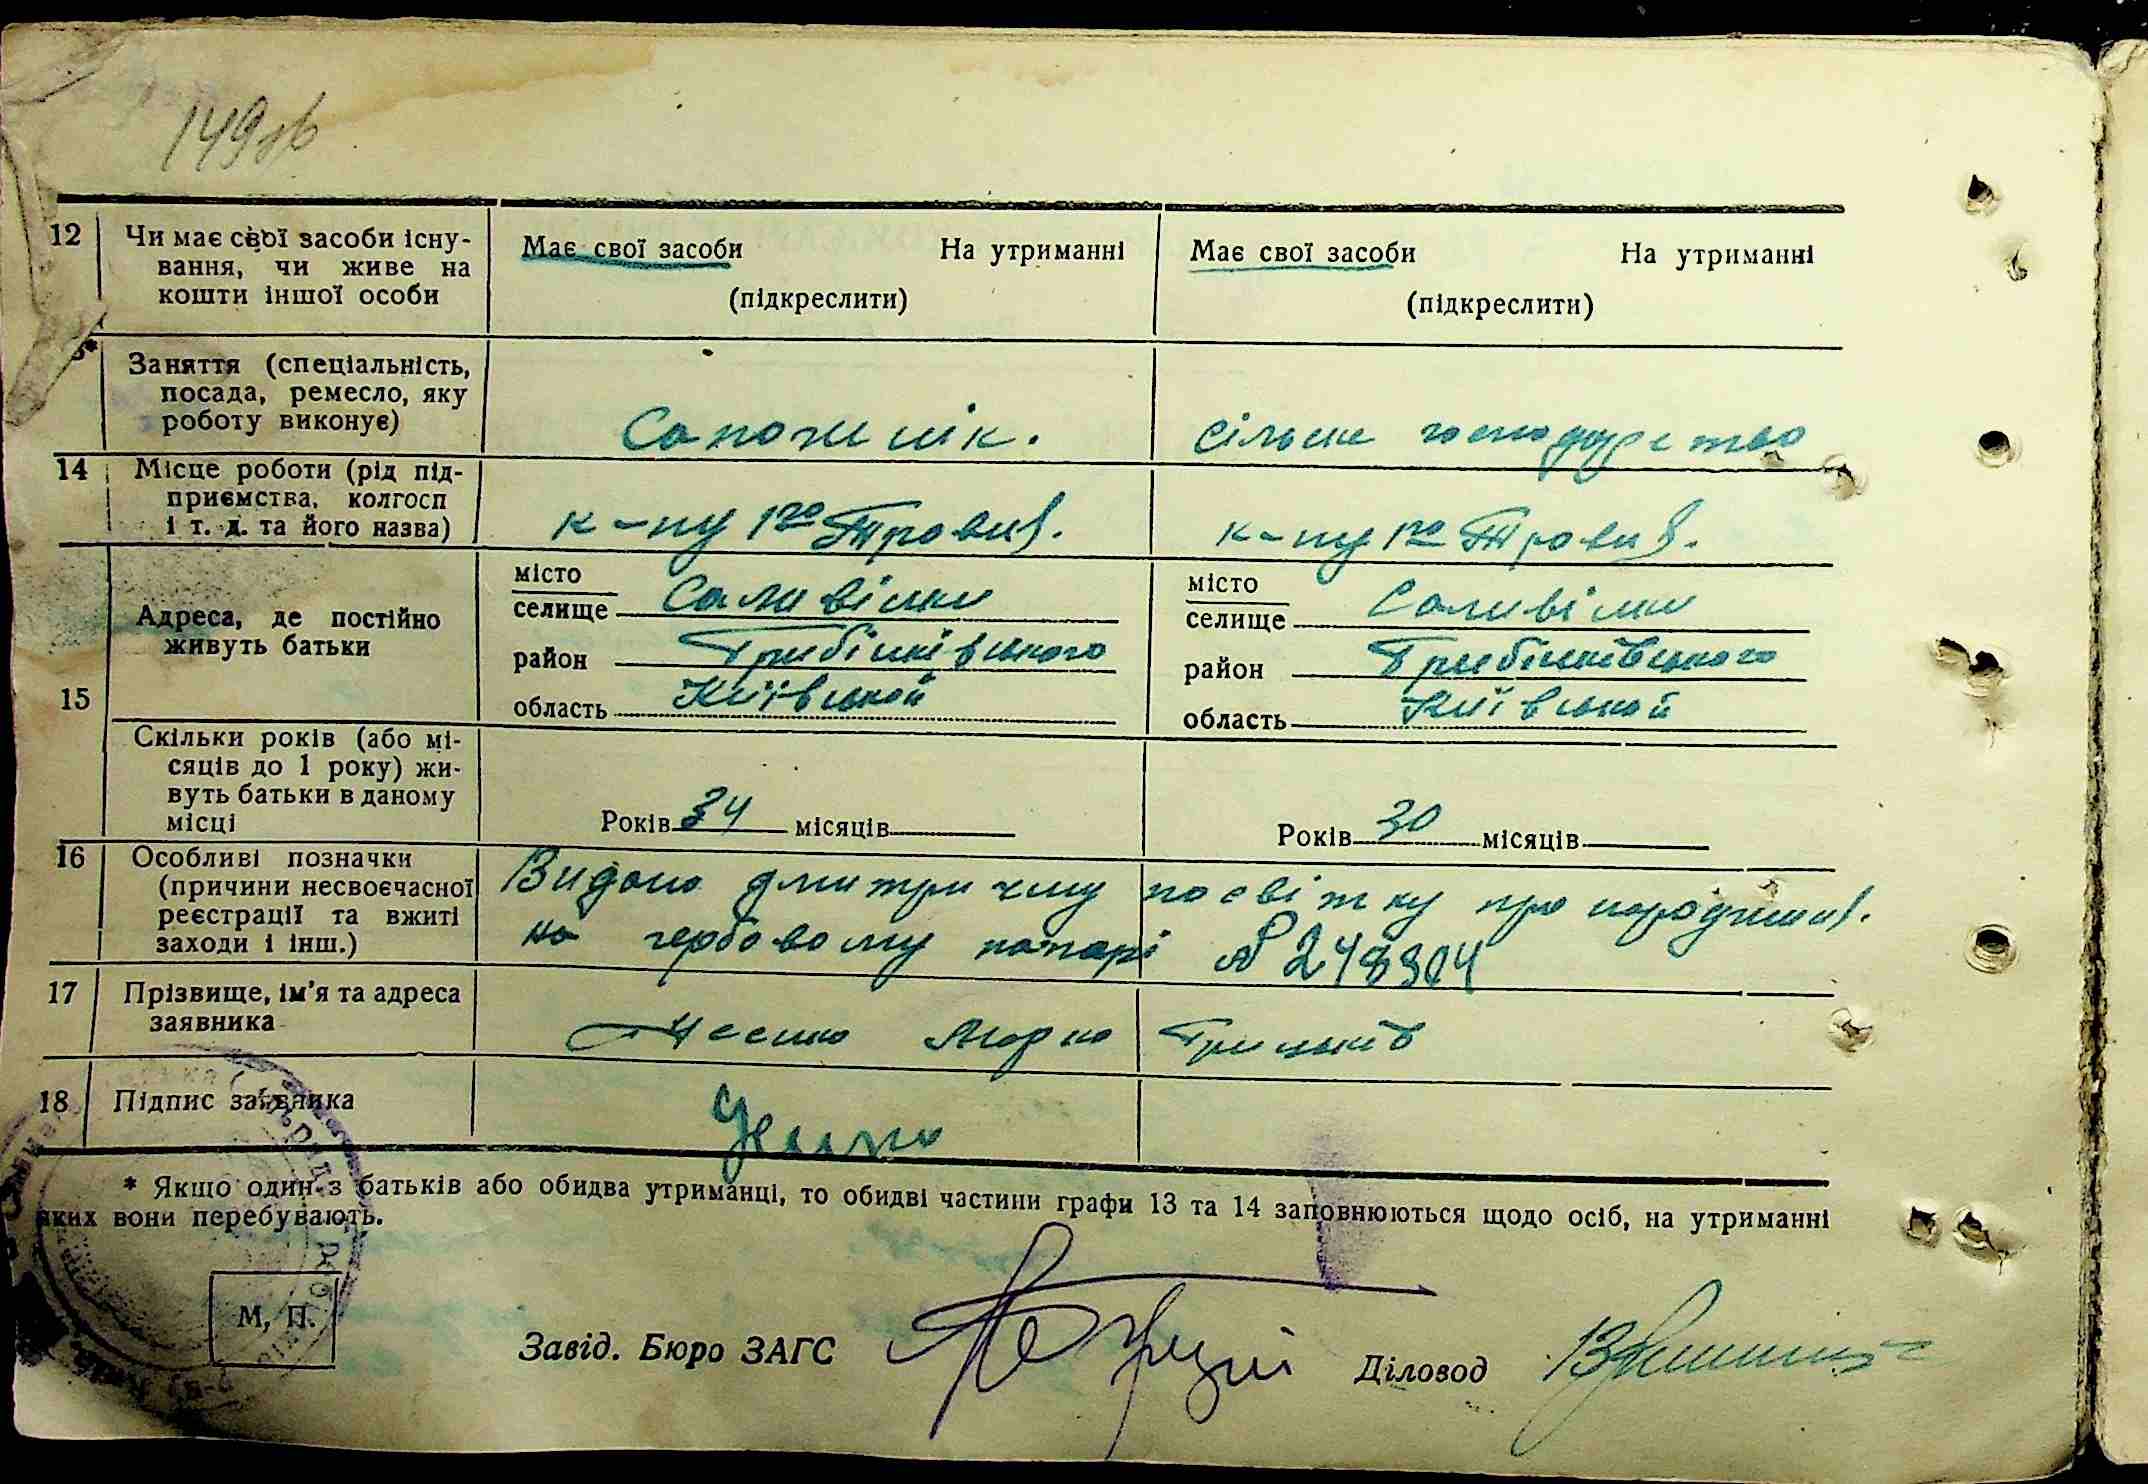 149зв
12 Чи має свої засоби існу-
вання, чи живе на
кошти іншої особи
Має свої засоби На утриманні
(підкреслити)
Має свої засоби На утриманні
(підкреслити)
Заняття (спеціальність,
посада, ремесло, яку
роботу виконує)
Сапожнік.
сільське господарство
14 Місце роботи (рід під-
приємства, колгосп
і т. д. та його назва)
к-пу 1го Травня.
к-пу 1го Травня.
15 Адреса, де постійно
живуть батьки
місто
селище Саливінки
район Гребінківського
область Київської
місто
селище Саливінки
район Гребінківського
область Київської
Скільки років (або мі-
сяців до 1 року) жи-
вуть батьки в даному
місці
Років 34 місяців
Років 30 місяців
16 Особливі позначки
(причини несвоєчасної
реєстрації та вжиті
заходи і інш.)
Видано посвітку про народжен.
на гербовому папері № 248304
17 Прізвище, ім'я та адреса
заявника
Марко Грицьків
18 Підпис заявника
* Якщо один з батьків або обидва утриманці, то обидві частини графи 13 та 14 заповнюються щодо осіб, на утриманні
яких вони перебувають.
М. П.
Завід. Бюро ЗАГС
Діловод